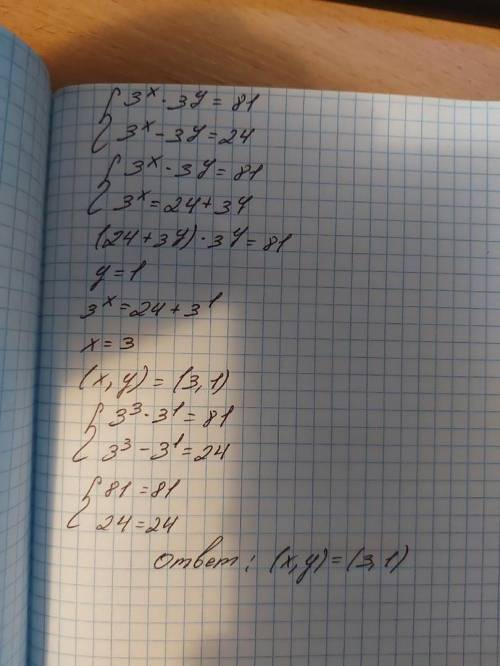 { 3ˣ · 3ʸ = 81
{ 3ˣ - 3ʸ = 24
{ 3ˣ · 3ʸ = 81
{ 3ˣ = 24 + 3ʸ
(24 + 3ʸ) · 3ʸ = 81
y = 1
3ˣ = 24 + 3¹
x = 3
(x, y) = (3, 1)
{ 3³ · 3¹ = 81
{ 3³ - 3¹ = 24
{ 81 = 81
{ 24 = 24
Ответ: (x, y) = (3, 1)